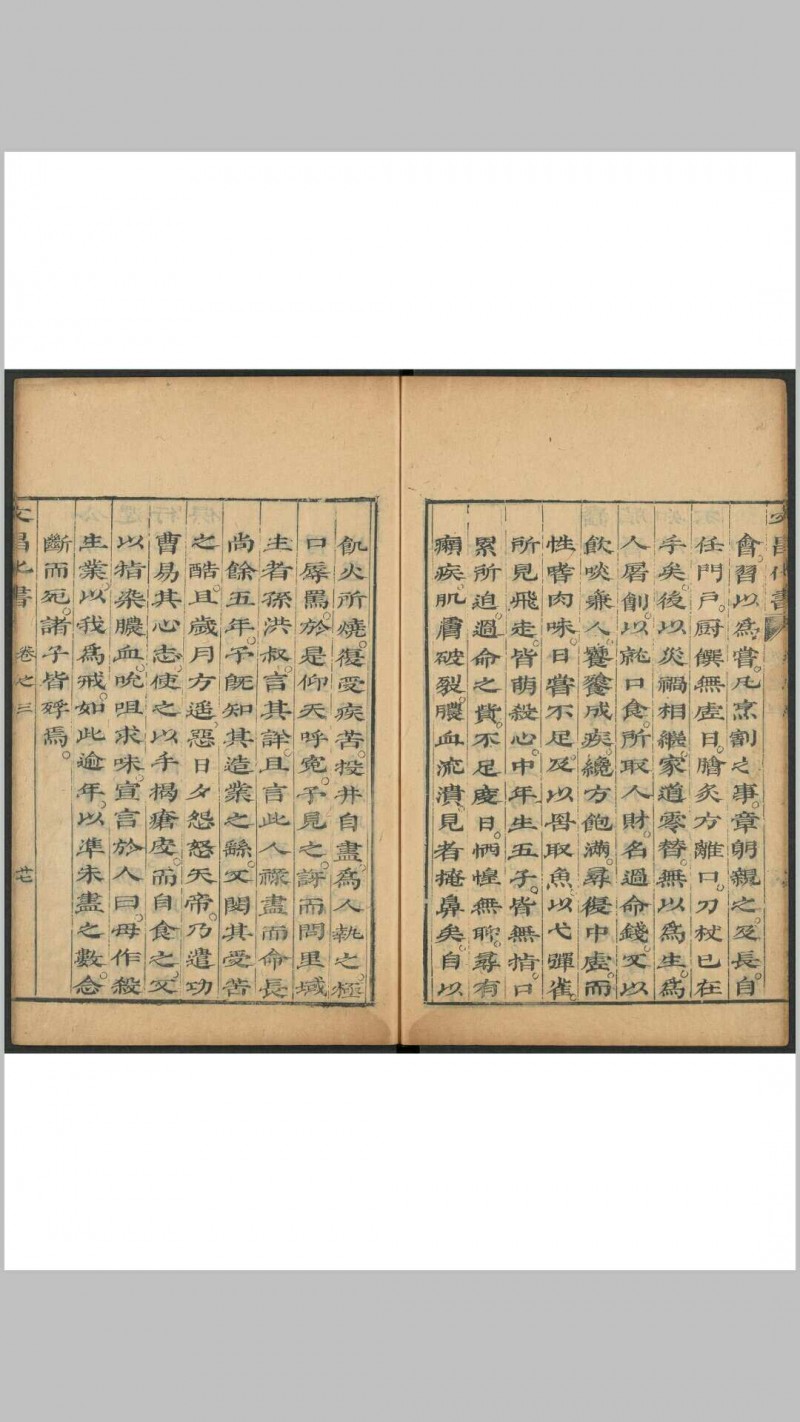 會。習以為嘗。凡烹割之事。章朙親之。及長。自
任門戶。厨饌無虛日。膾炙方離口。刀杖已在
手矣。後以災禍相繼。家道零替。無以為生。為
人屠創。以就口食。所取人財。名過命錢。又以
飲啖兼人。饕餮成疾。纔方飽滿。尋復中虛。而
性嗜肉味。日嘗不足。及以罟取魚。以弋彈雀。
所見飛走。皆萌殺心。中年生五子。皆無指。口
累所迫。過命之貲。不足度日。恓惶無聊。尋有
癩疾。肌膚破裂。膿血流潰。見者掩鼻矣。自以
文昌化書
飢火所燒。復受疾苦。投井自盡。為人執之。極
口辱罵。於是仰天呼寃。予見之。訝而問里域
主者孫洪叔。言其詳。且言此人祿盡而命長
尚餘五年。予既知其造業之繇。又閔其受苦
之酷。且歲月方遥。惡日夕怨怒天帝。乃遣功
曹易其心志。使之以手揭瘡皮。而自食之。又
以指染膿血。吮咀求味。宣言於人曰。毋作殺
生業。以我為戒。如此逾年。以準未盡之數。舌
斷而死。諸子皆殍焉。
文昌化書 卷之三 廿七